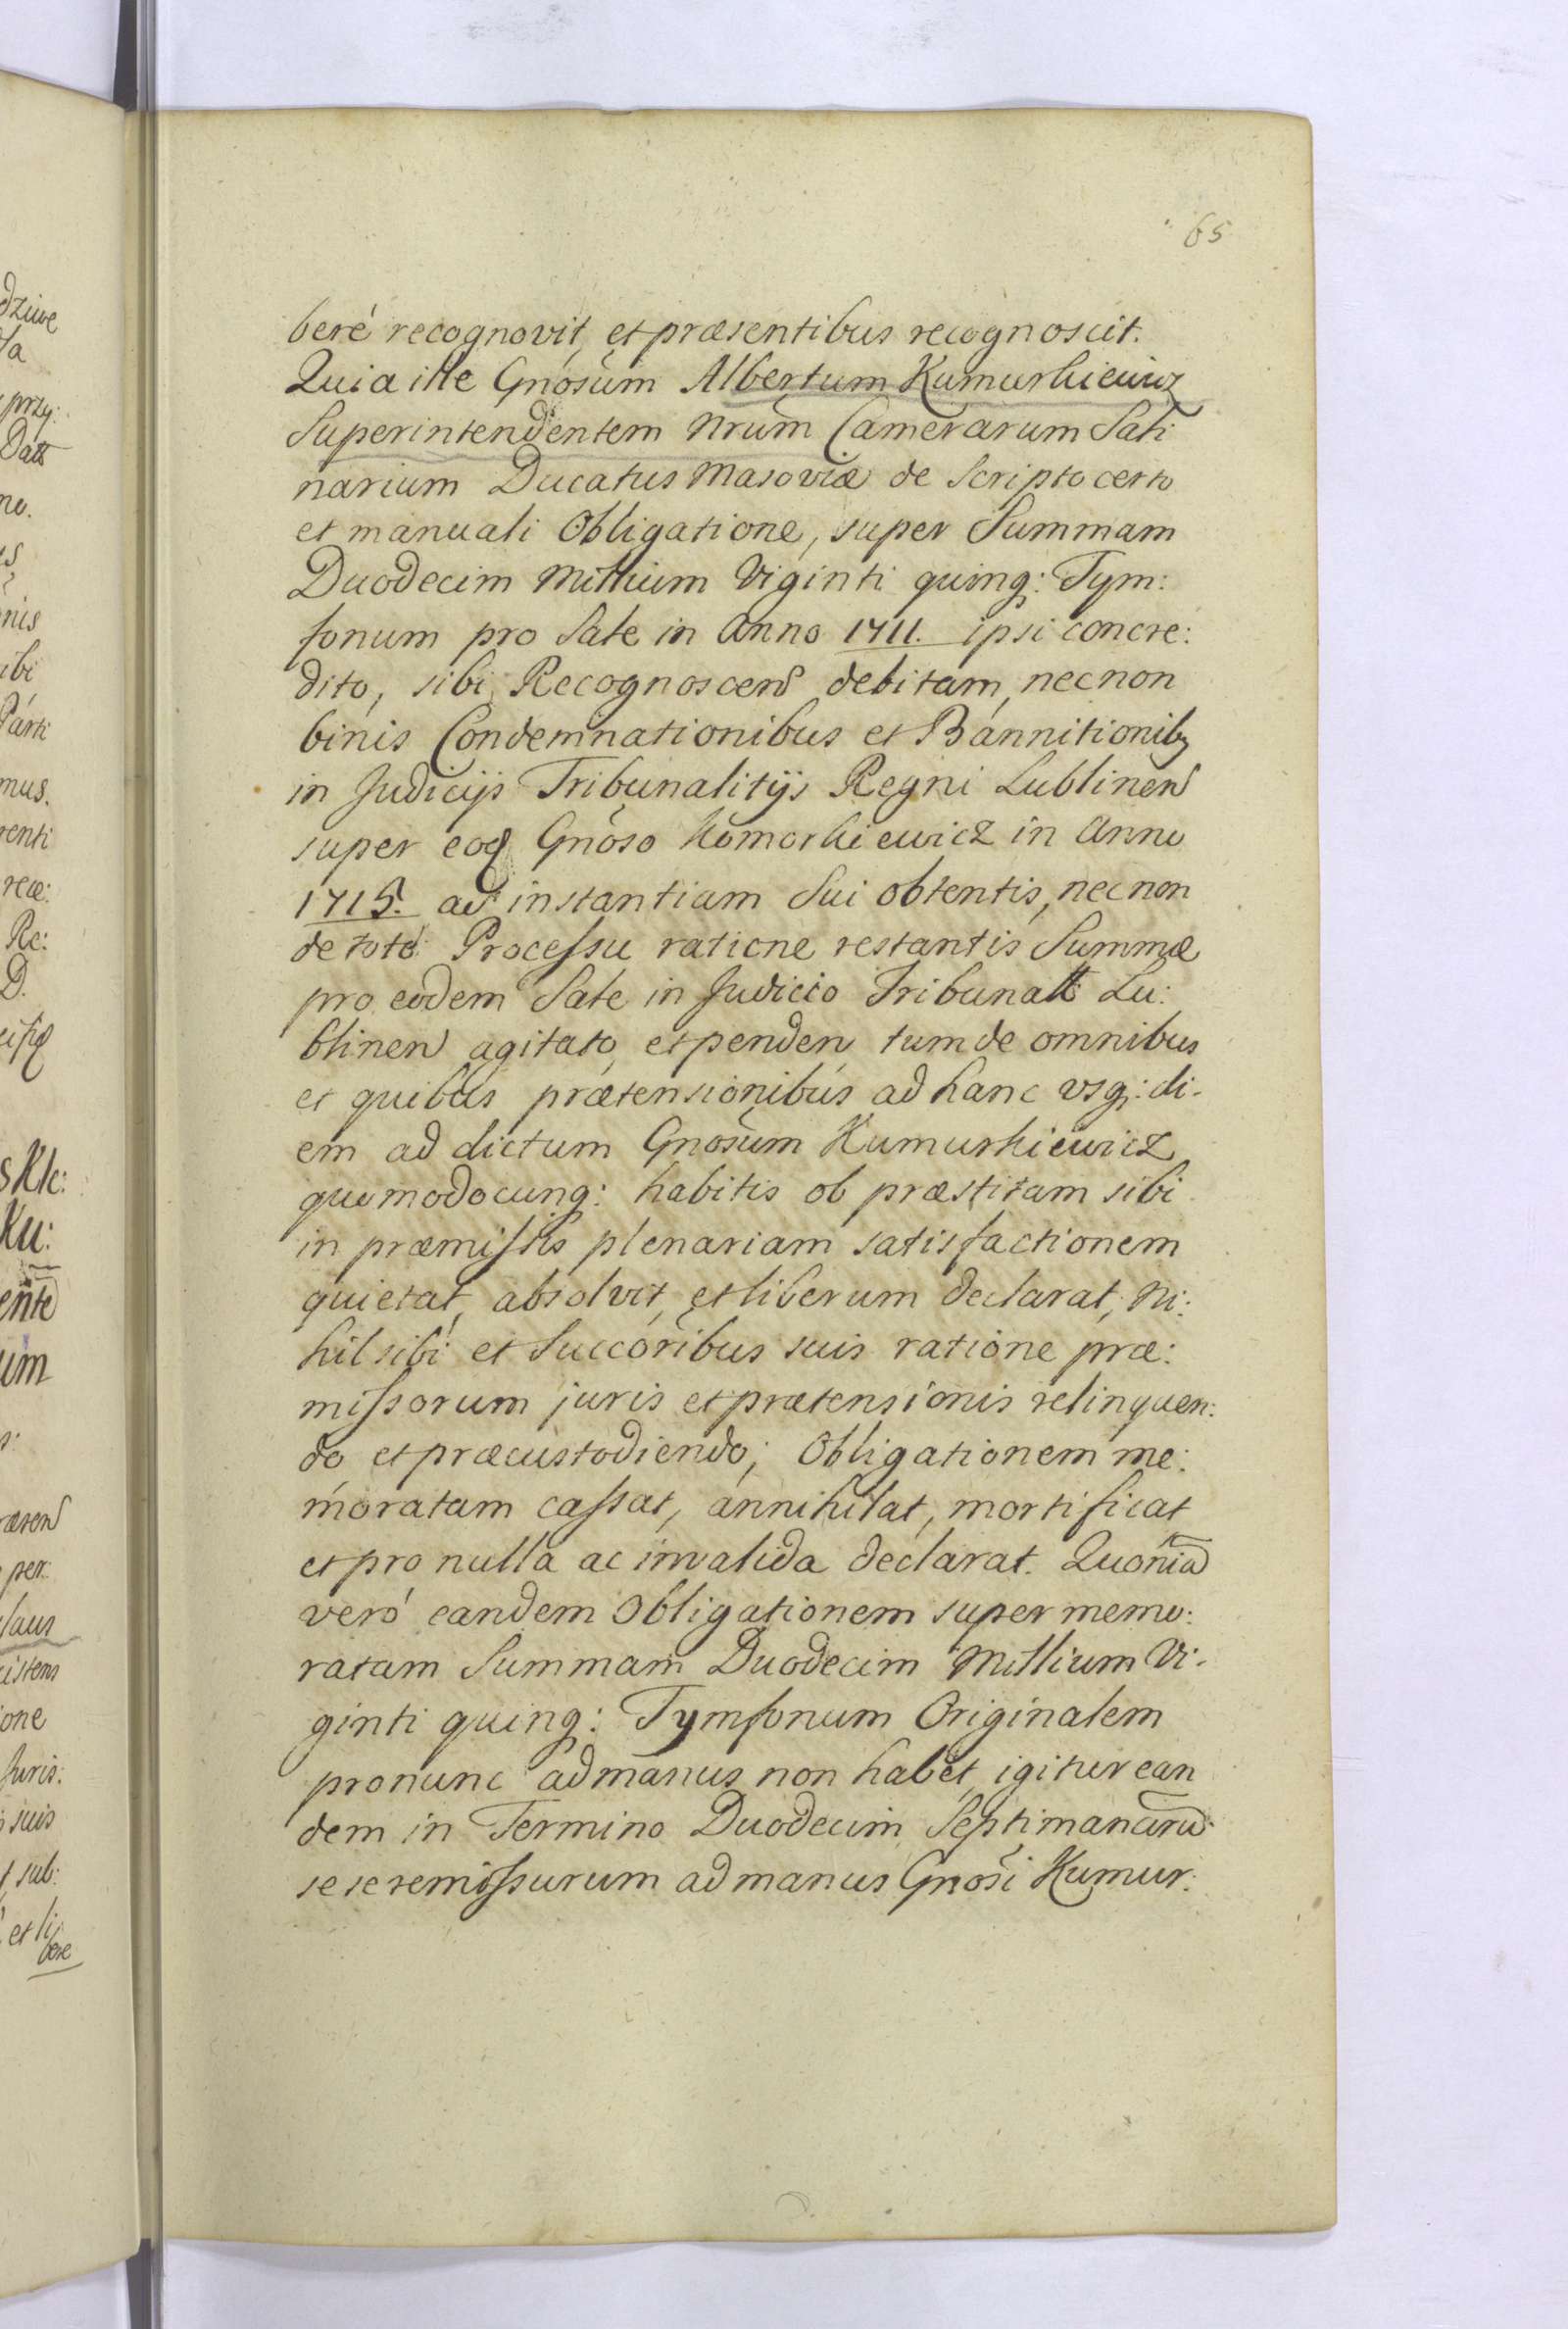 65
beré recognovit, et præsentibus recognoscit.
Quia ille Gnosum Albertum Kumurkiewicz
Superintendentem Nrum Camerarum Sali
narium Ducatus Masoviæ de Scripto certo
et manuali Obligatione, super Summam
Duodecim Millium Viginti quinq: Tym:
fonum pro Sale in Anno 1711. ipsi concre:
dito, sibi Recognoscen debitam, necnon
binis Condemnationibus et Bannitionibq
in Judicijs Tribunalitijs Regni Lublinen
super eod Gnoso Komorkiewicz in Anno
1715. ad instantiam Sui obtentis, necnon
de toto Processu ratione restantis Summæ
pro eodem Sale in Judicio Tribunall Lu:
blinen agitato et penden, tum de omnibus
et quibus prætensionibus ad hanc usq: di-
em ad dictum Gnosum Kumurkiewicz
quomodocunq: habitis ob præstitam sibi
in præmissis plenariam satisfactionem
quietat, absolvit, et liberum declarat, Ni:
hil sibi et Succoribus suis ratione præ:
missorum juris et prætensionis relinquen:
do et præcustodiendo; Obligationem me:
moratam cassat, annihilat, mortificat
et pro nulla ac invalida declarat. Quonia
veró eandem Obligationem super memo:
ratam Summam Duodecim Millium Vi-
ginti quinq: Tymfonum Originalem
pronunc ad manus non habet, igitur ean
dem in Termino Duodecim Septimanaru
se se remissurum ad manus Gnosi Kumur: